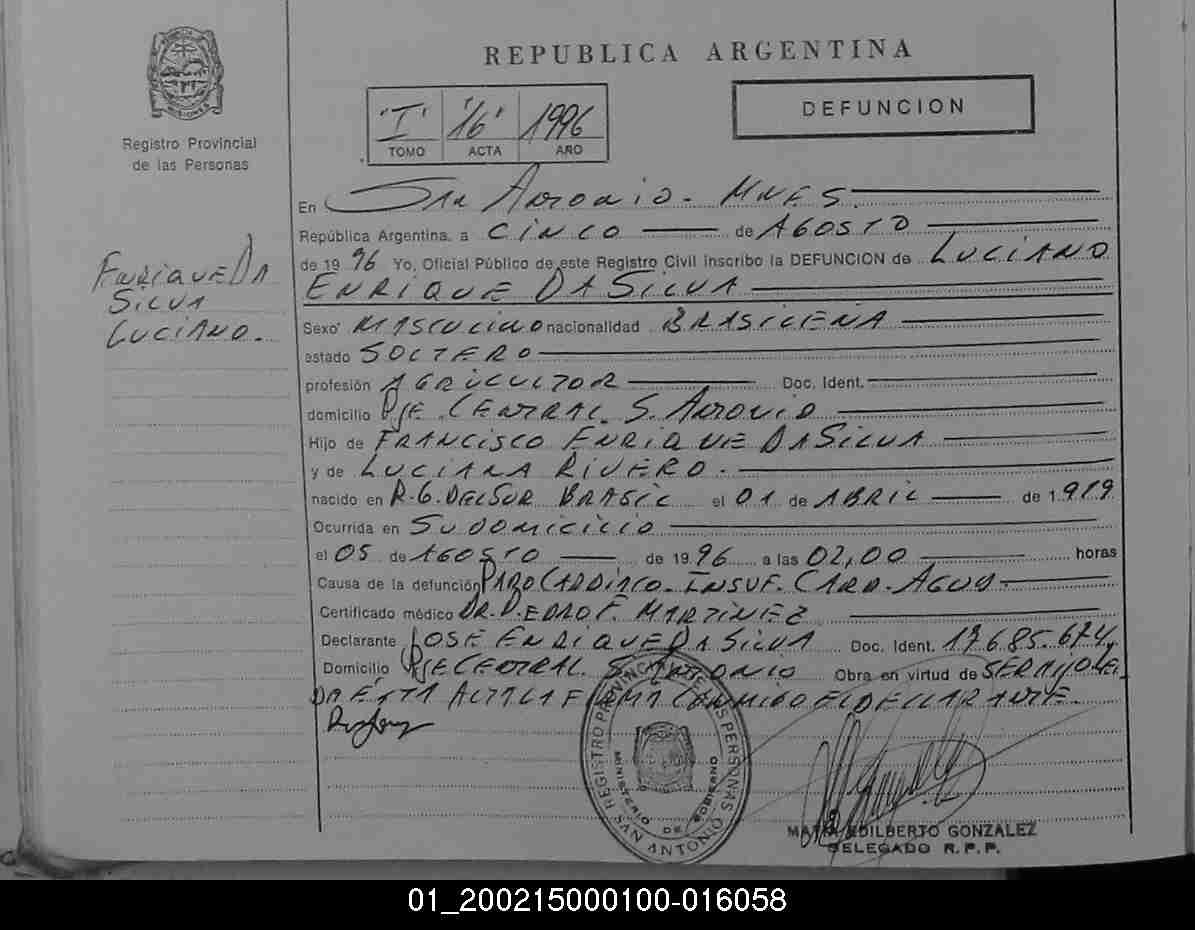 REPUBLICA ARGENTINA
DEFUNCION
"I" "16" 1996
TOMO ACTA AÑO
MISIONES
Registro Provincial
de las Personas
ENRIQUE DA
SILVA
LUCIANO.
En San Antonio - MNES.
República Argentina, a CINCO de AGOSTO
de 1996 Yo, Oficial Público de este Registro Civil inscribo la DEFUNCION de LUCIANO
ENRIQUE DA SILVA
Sexo MASCULINO nacionalidad BRASILEÑA
estado SOLTERO
profesión AGRICULTOR Doc. Ident.
domicilio PJE. CENTRAL S. ANTONIO
Hijo de FRANCISCO ENRIQUE DA SILVA
y de LUCIANA RIVERO.
nacido en R.G. DEL SUR BRASIL el 01 de ABRIL de 1919
Ocurrida en SU DOMICILIO
el 05 de AGOSTO de 1996 a las 02,00 horas
Causa de la defunción PARO CARDIACO. INSUF. CARD. AGUD
Certificado médico DR. PEDRO F. MARTINEZ
Declarante JOSE ENRIQUE DA SILVA Doc. Ident. 17.685.674,
Domicilio PJE CENTRAL. S. ANTONIO Obra en virtud de SER HIJO LEI-
DA ESTA ACTA LA FIRMA CONMIGO EL DECLARANTE.
REGISTRO PROVINCIAL DE LAS PERSONAS
MINISTERIO DE GOBIERNO
SAN ANTONIO
EDILBERTO GONZALEZ
DELEGADO R.P.P.
01_200215000100-016058